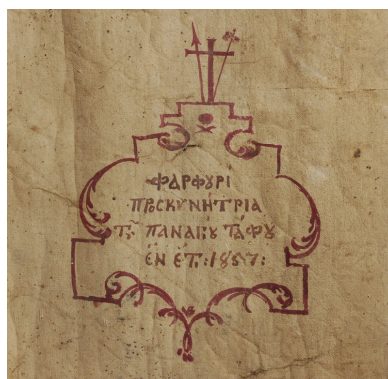 ΦΑΡΦȢΡΙ
ΠΡΟΣΚΥΝΗΤΡΙΑ
ΤȢ͂ ΠΑΝΑΓΙȢ ΤΑΦȢ
ΕΝ ΕΤ: 1857: